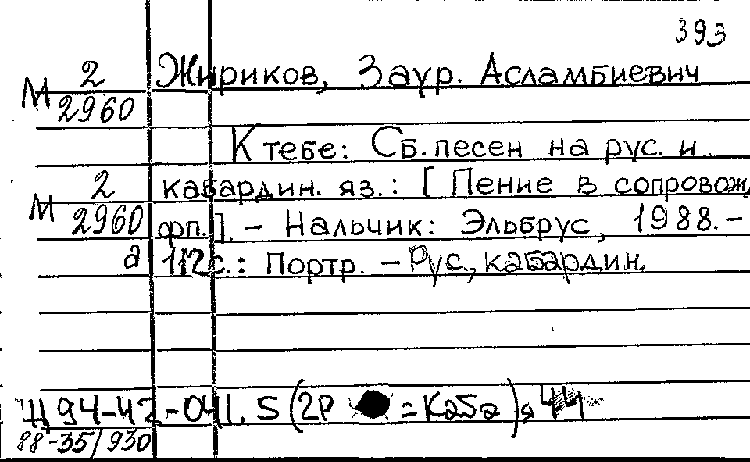 393
М 2/2960 Жириков, Заур. Асламбиевич
К тебе: Сб. песен на рус. и
М 2/2960 кабардин. яз.: [Пение в сопровож.
а фп.]. - Нальчик: Эльбрус, 1988. -
112с.: Портр. - Рус., кабардин.
Щ 94-42-041.5(2Р = Каба)я44
88-35/930